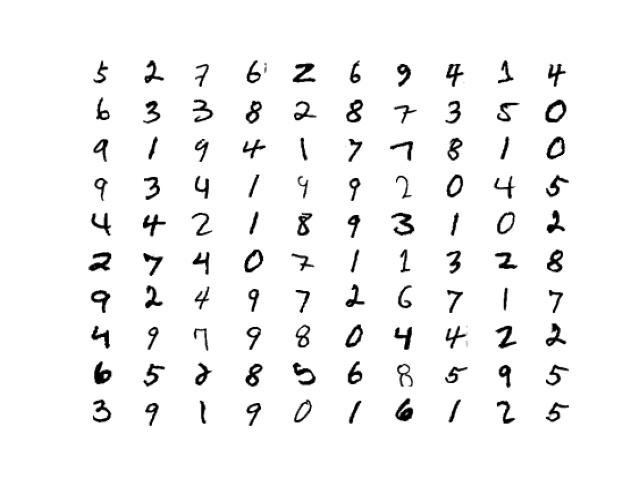 5 2 7 6 2 6 9 4 1 4
6 3 3 8 2 8 7 3 5 0
9 1 9 4 1 7 7 8 1 0
9 3 4 1 9 9 2 0 4 5
4 4 2 1 8 9 3 1 0 2
2 7 4 0 7 1 1 3 2 8
9 2 4 9 7 2 6 7 1 7
4 9 7 9 8 0 4 4 2 2
6 5 2 8 5 6 8 5 9 5
3 9 1 9 0 1 6 1 2 5